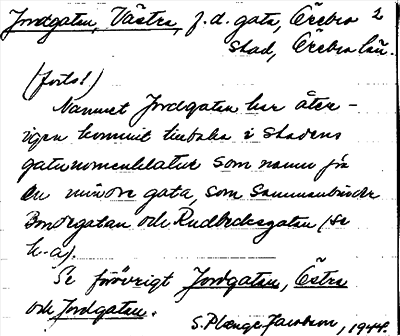 Jordgatan, Västra, f.d. gata, Örebro 2
stad, Örebro län.
(forts!)
Namnet Jordgatan har åter-
igen kommit tillbaka i stadens
gatunomenklatur som namn för
en mindre gata, som sammanbinder
Bondegatan och Rudbecksgatan (se
h-a).
Se förövrigt Jordgatan, Östra
och Jordgatan.
S. Plænge Jacobson, 1944.